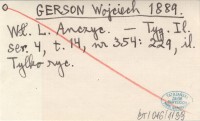 GERSON Wojciech 1889.
Wł. L. Anczyc. — Tyg. Il.
ser. 4, t. 14, nr 354: 229, il.
Tylko ryc.